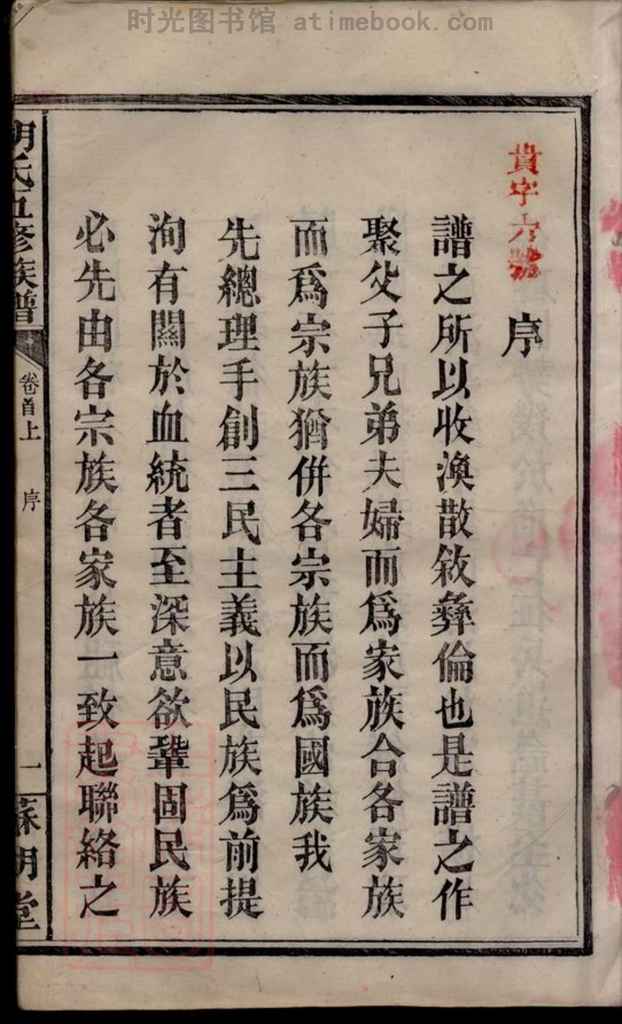 时光图书馆 atimebook.com
貴字六號
序
譜之所以收渙散敘彝倫也是譜之作
聚父子兄弟夫婦而爲家族合各家族
而爲宗族猶併各宗族而爲國族我
先總理手創三民主義以民族爲前提
洵有關於血統者至深意欲鞏固民族
必先由各宗族各家族一致起聯絡之
胡氏五修族譜
卷首上
序
一
蘇朋堂